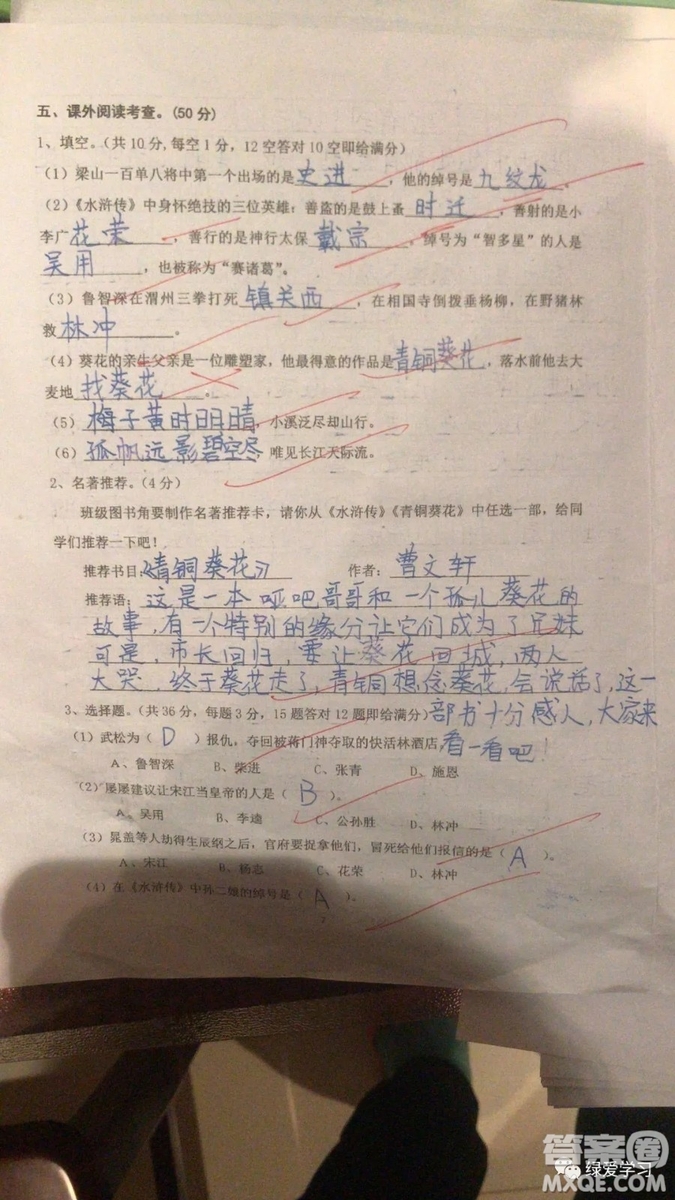 五、课外阅读考查。(50分)
1、填空。（共10分,每空1分，12空答对10空即给满分）
(1）梁山一百单八将中第一个出场的是史进，他的绰号是九纹龙。
(2)《水浒传》中身怀绝技的三位英雄：善盗的是鼓上蚤时迁，善射的是小
李广花荣，善行的是神行太保戴宗，绰号为“智多星”的人是
吴用，也被称为“赛诸葛”。
(3）鲁智深在渭州三拳打死镇关西，在相国寺倒拨垂杨柳，在野猪林
救林冲。
(4）葵花的亲生父亲是一位雕塑家，他最得意的作品是青铜葵花，落水前他去大
麦地找葵花。
(5）梅子黄时日日晴，小溪泛尽却山行。
(6）孤帆远影碧空尽 唯见长江天际流。
2、名著推荐。（4分）
班级图书角要制作名著推荐卡，请你从《水浒传》《青铜葵花》中任选一部，给同
学们推荐一下吧！
推荐书目:《青铜葵花》 作者：曹文轩
推荐语：这是一本哑吧哥哥和一个孤儿葵花的
故事，有一个特别的缘分让它们成为了兄妹
可是，市长回归，要让葵花回城，两人
大哭，终于葵花走了，青铜想念葵花，会说话了，这一
3、选择题。（共36分，每题3分，15题答对12题即给满分）部书十分感人，大家来
(1）武松为（D）报仇，夺回被蒋门神夺取的快活林酒店，看一看吧！
A、鲁智深 B、柴进 C、张青 D、施恩
(2）屡屡建议让宋江当皇帝的人是（B）。
A、吴用 B、李逵 C、公孙胜 D、林冲
(3）晁盖等人劫得生辰纲之后，官府要捉拿他们，冒死给他们报信的是（A）。
A、宋江 B、杨志 C、花荣 D、林冲
(4）在《水浒传》中孙二娘的绰号是（A）。
2
答案圈
绿爱学习
MXQE.COM